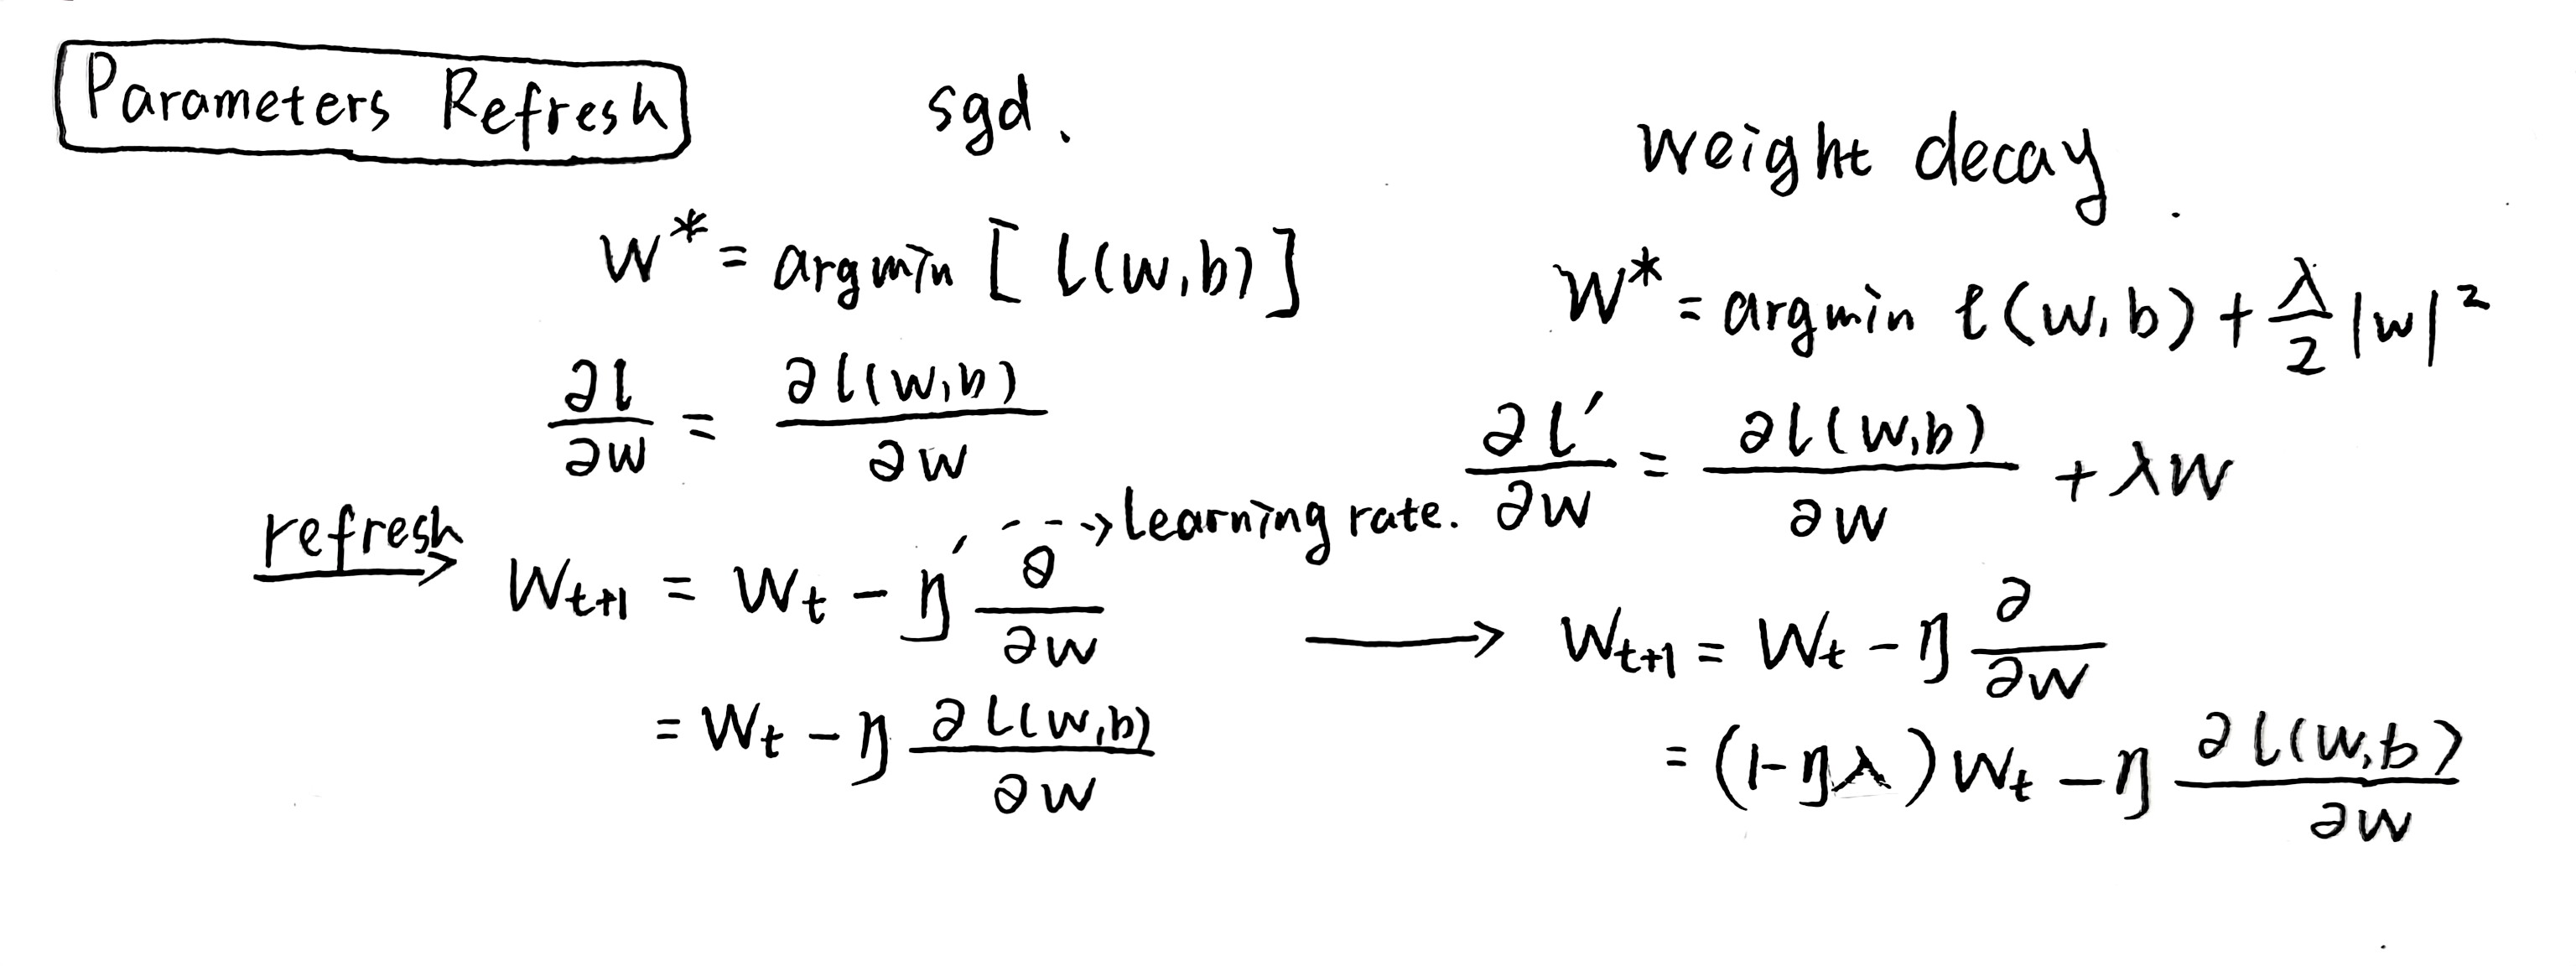 Parameters Refresh
sgd.
w* = argmin [ l(w,b) ]
∂l/∂w = ∂l(w,b)/∂w
refresh
→ learning rate.
w_{t+1} = w_t - η ∂/∂w
= w_t - η ∂l(w,b)/∂w
weight decay.
w* = argmin l(w,b) + λ/2 |w|²
∂l′/∂w = ∂l(w,b)/∂w + λw
→ w_{t+1} = w_t - η ∂/∂w
= (1-ηλ)w_t - η ∂l(w,b)/∂w